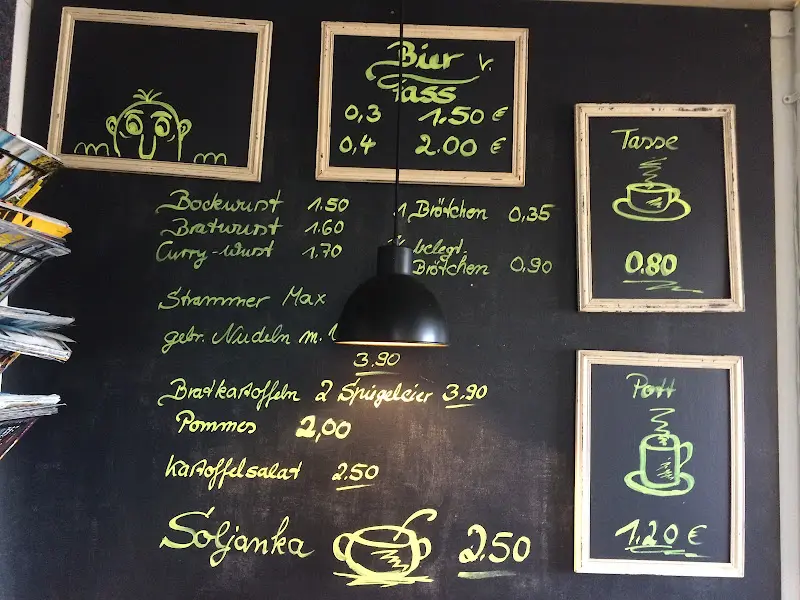 Bier v.
Fass
0,3 1.50 €
0,4 2.00 €
Tasse
0.80
Bockwurst 1.50
Bratwurst 1.60
Curry-Wurst 1.70
1 Brötchen 0,35
belegt.
Brötchen 0,90
Strammer Max
gebr. Nudeln m.
3.90
Bratkartoffeln 2 Spiegeleier 3.90
Pommes 2,00
Kartoffelsalat 2.50
Soljanka 2.50
Pott
1.20 €